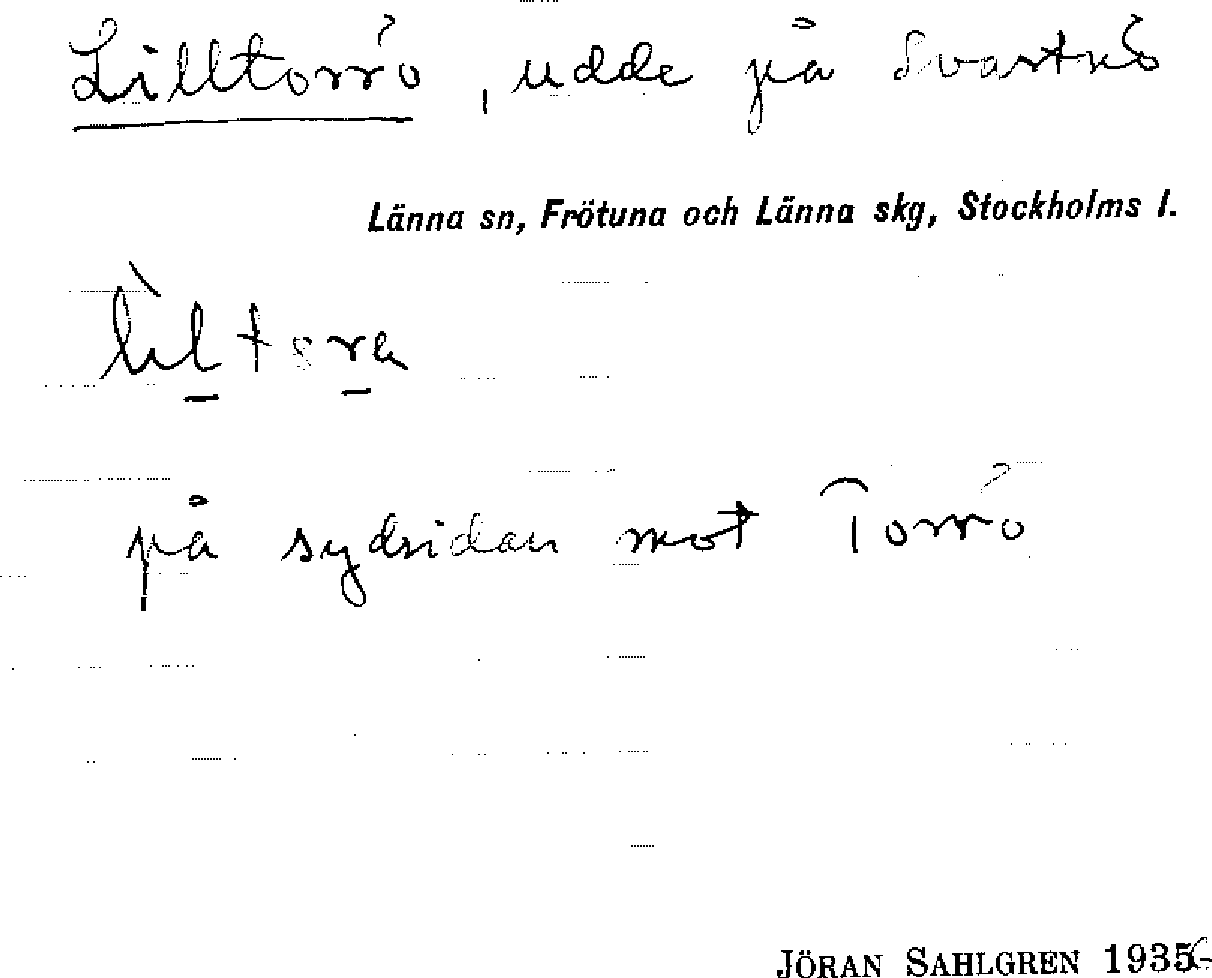 Lilltorrö, udde på Svartnö
Länna sn, Frötuna och Länna skg, Stockholms l.
på sydsidan mot Torrö
JÖRAN SAHLGREN 1935